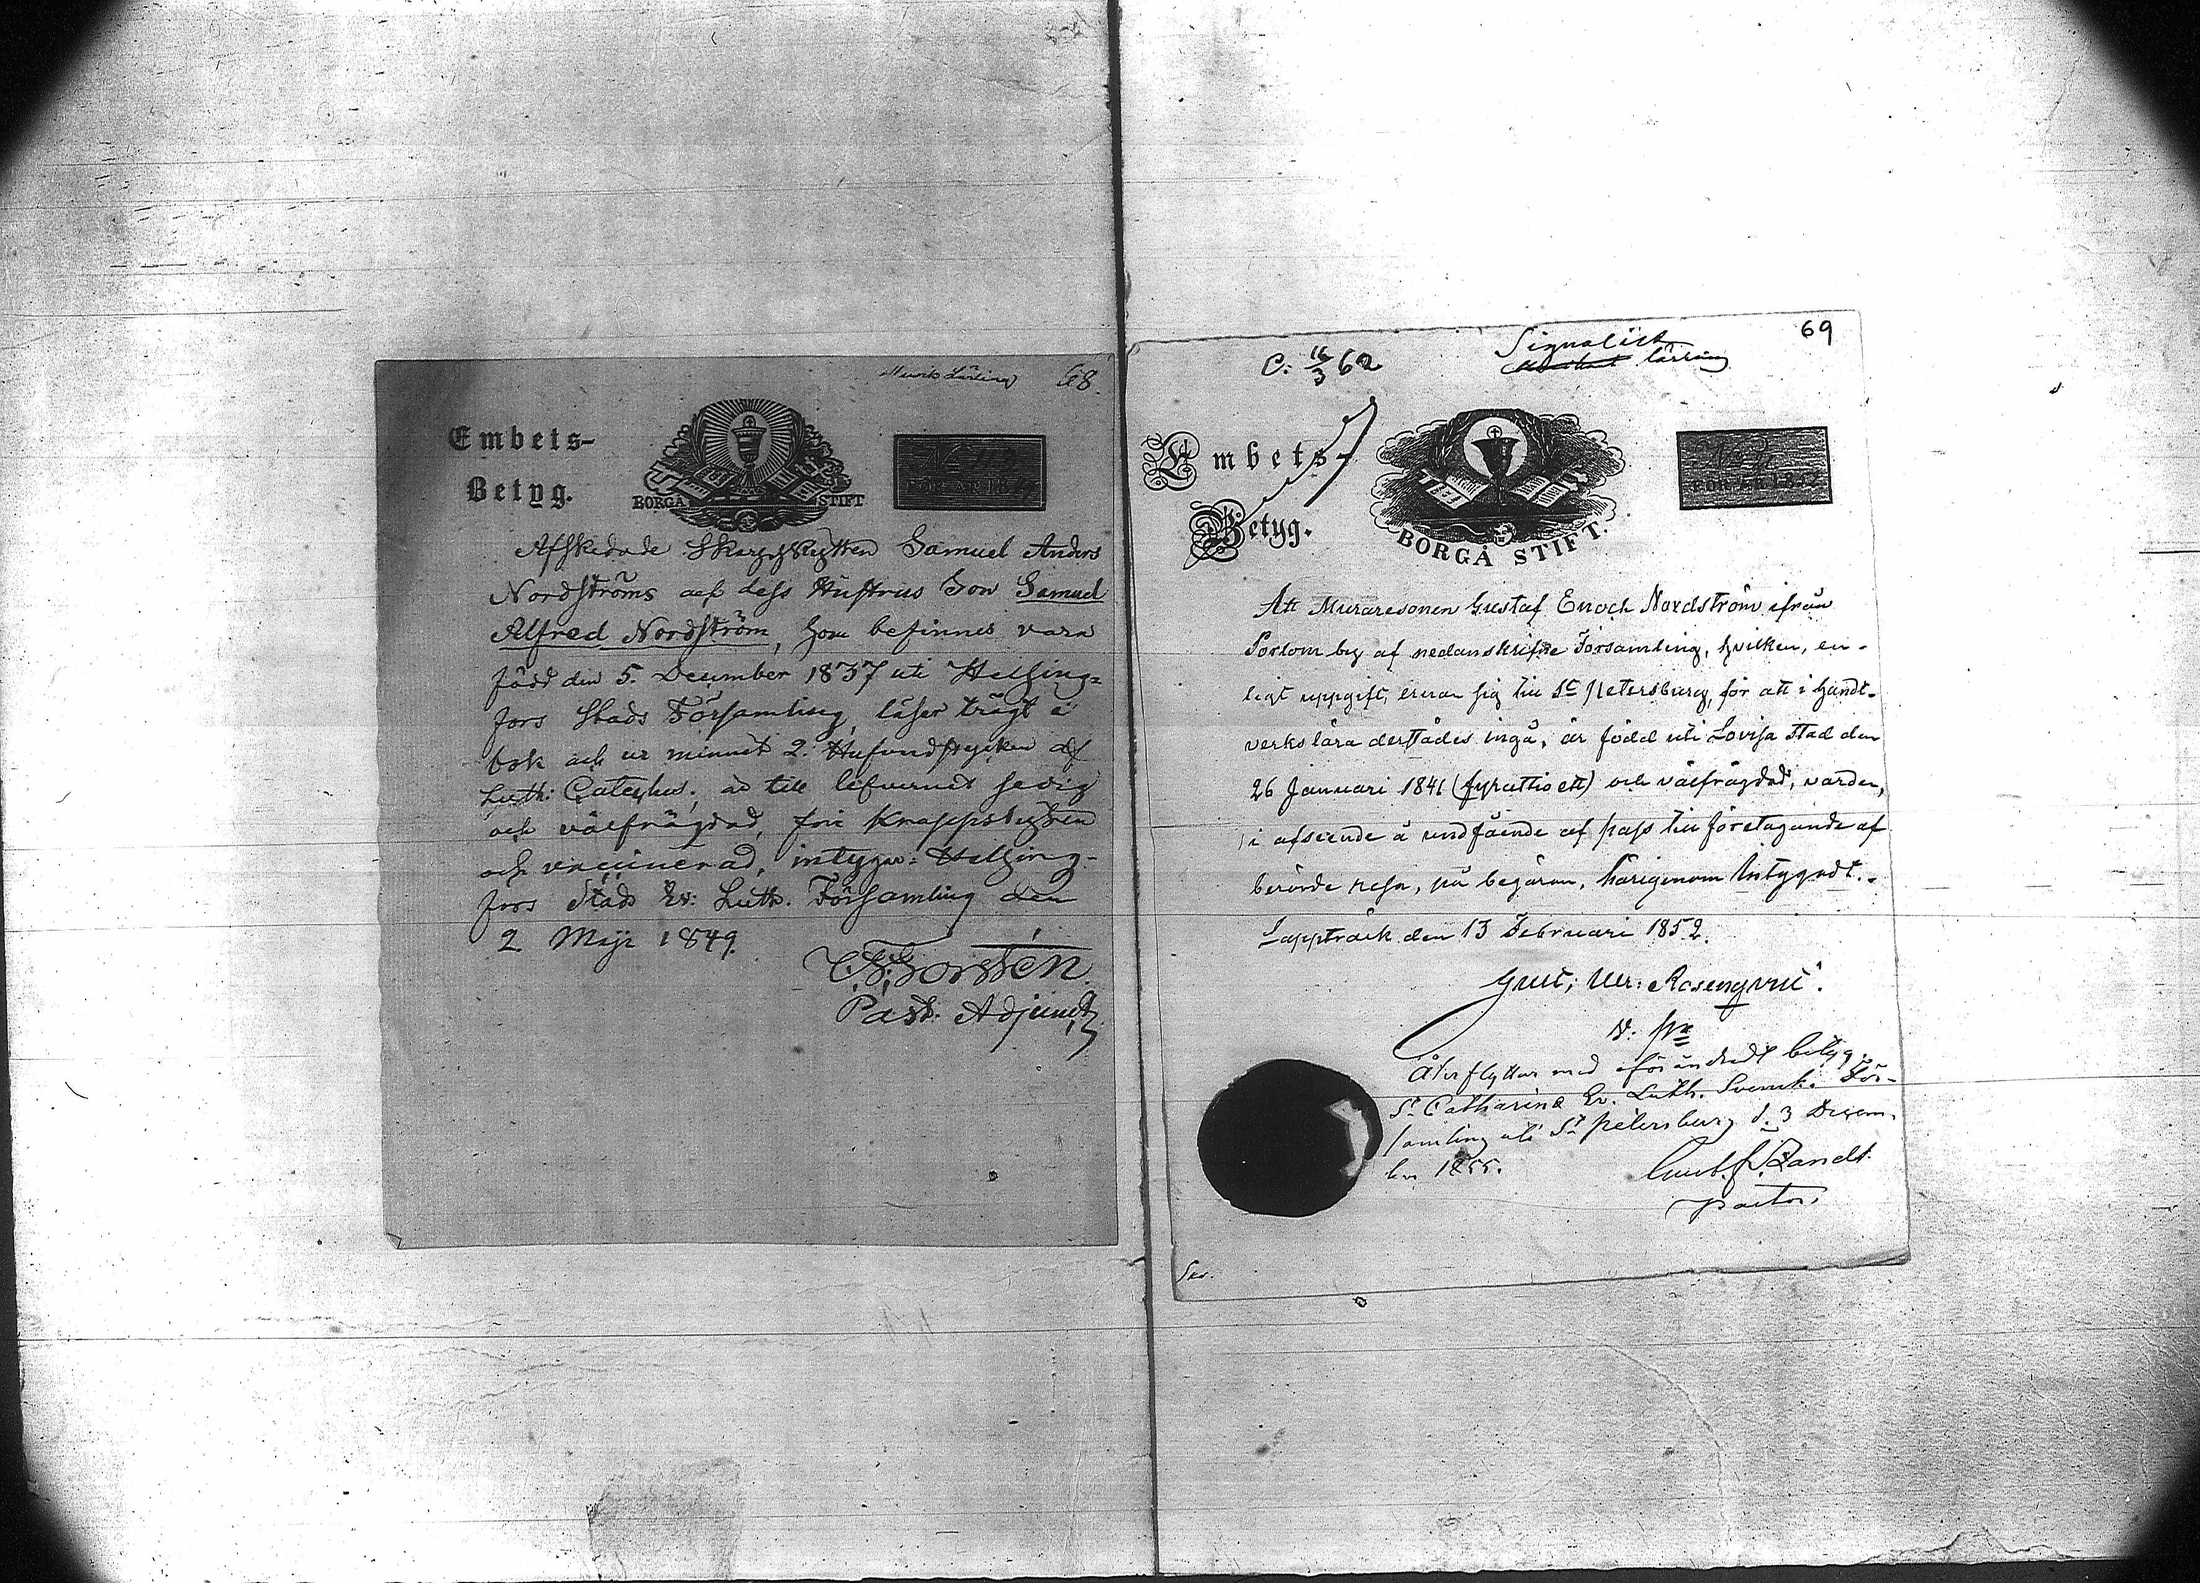 Musik Lärling 68.
Embets-
Betyg.
BORGÅ STIFT
FÖR ÅR 18
Afskedade Skarpskytten Samuel Anders
Nordströms och dess Hustrus Son Samuel
Alfred Nordström, som befinnes vara
född den 5. December 1837 uti Helsing=
fors Stads Församling, läser trögt i
bok och ur minnet 2. Hufvudstycken af
Luth: Cateches; är till lefvernet sedig
och välfrägdad, fri
och vaccinerad, intygar: Helsing-
fors Stads Ev: Luth. Församling den
2. Maji 1849.
Past. Adjunct
69
C. 16/3 62
Signalist
lärling
Embets-
Betyg.
BORGÅ STIFT.
FÖR ÅR 1852
Att Muraresonen Gustaf Enoch Nordström ifrån
Porlom by af nedanskrifne Församling, hvilken, en-
ligt uppgift, ernar sig till St Petersburg, för att i handt-
verks lära derstädes ingå, är född uti Lovisa stad den
26 Januari 1841 (fyratioett) och välfrägdad, varder,
i afseende å undfående af pass till företagande af
berörde resa, på begäran, härigenom Intygadt.
Lappträsk den 13 Februari 1852.
Gust; Rosenqvist.
v. p
Återflyttar med oförändradt betyg.
St Catharina Ev. Luth. Svenska För-
samling uti St Petersburg d. 3 Decem-
ber 1855.
Gust. F. Zandt.
Pastor.